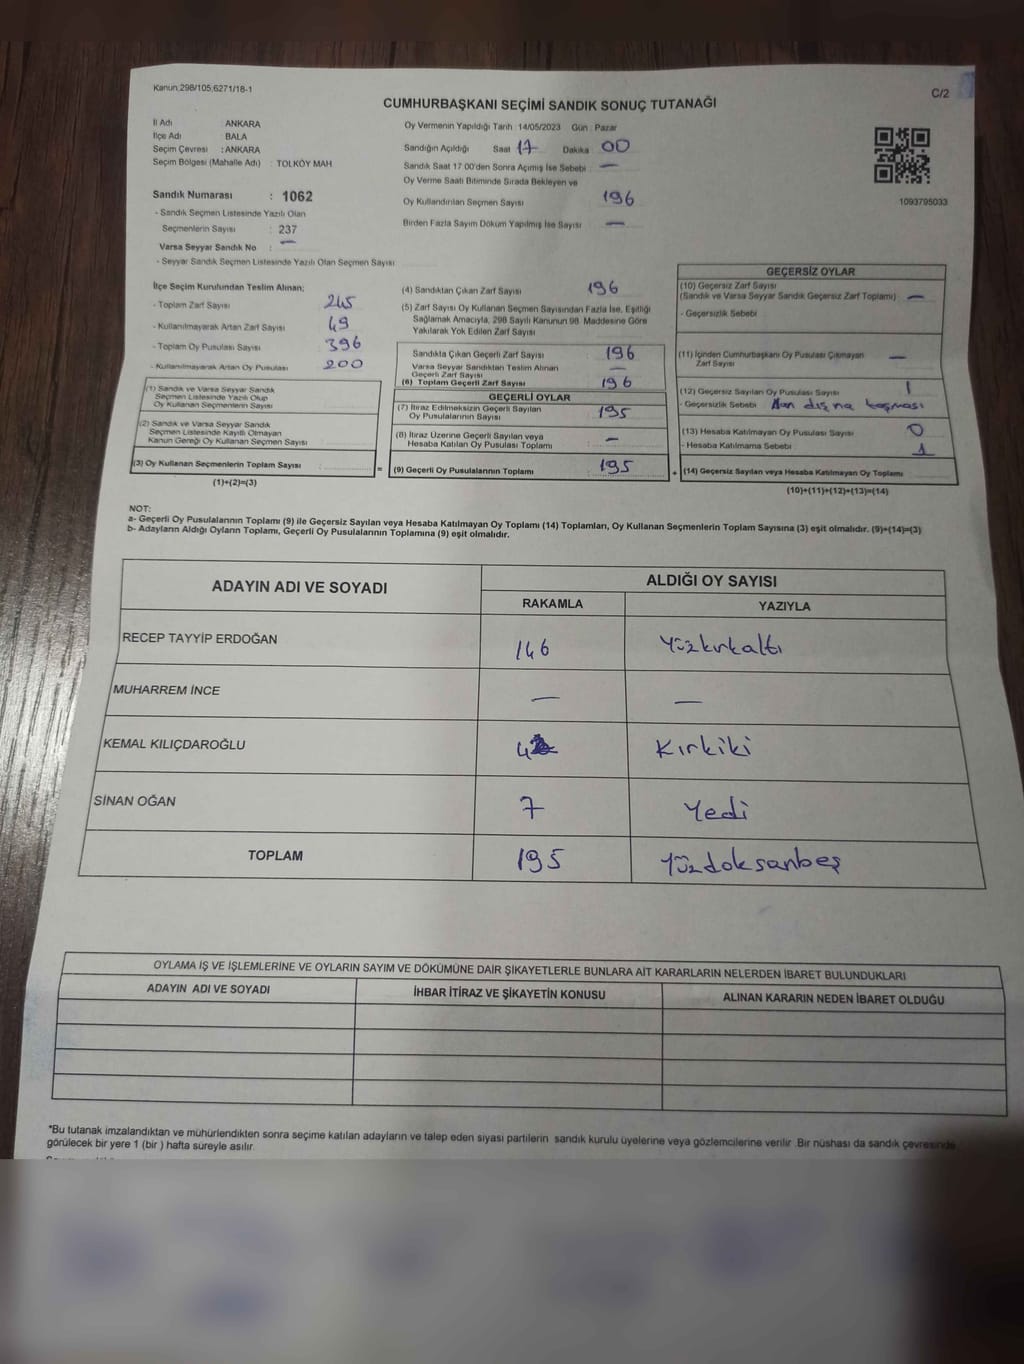 Kanun;298/105;6271/18-1
C/2
CUMHURBAŞKANI SEÇİMİ SANDIK SONUÇ TUTANAĞI
İl Adı ANKARA
İlçe Adı BALA
Seçim Çevresi : ANKARA
Seçim Bölgesi (Mahalle Adı) : TOLKÖY MAH
Oy Vermenin Yapıldığı Tarih 14/05/2023 Gün Pazar
Sandığın Açıldığı Saat 17 Dakika 00
Sandık Saat 17 00'den Sonra Açımış İse Sebebi —
Oy Verme Saati Bitiminde Sırada Bekleyen ve
Oy Kullandırılan Seçmen Sayısı 196
Birden Fazla Sayım Döküm Yapılmış İse Sayısı —
1093795033
Sandık Numarası : 1062
- Sandık Seçmen Listesinde Yazılı Olan
Seçmenlerin Sayısı : 237
Varsa Seyyar Sandık No : —
- Seyyar Sandık Seçmen Listesinde Yazılı Olan Seçmen Sayısı
İlçe Seçim Kurulundan Teslim Alınan;
- Toplam Zarf Sayısı 245
- Kullanılmayarak Artan Zarf Sayısı 49
- Toplam Oy Pusulası Sayısı 396
- Kullanılmayarak Artan Oy Pusulası 200
(1) Sandık ve Varsa Seyyar Sandık
Seçmen Listesinde Yazılı Olup
Oy Kullanan Seçmenlerin Sayısı
(2) Sandık ve Varsa Seyyar Sandık
Seçmen Listesinde Kayıtlı Olmayan
Kanun Gereği Oy Kullanan Seçmen Sayısı
(3) Oy Kullanan Seçmenlerin Toplam Sayısı :
(1)+(2)=(3)
(4) Sandıktan Çıkan Zarf Sayısı 196
(5) Zarf Sayısı Oy Kullanan Seçmen Sayısından Fazla İse, Eşitliği
Sağlamak Amacıyla, 298 Sayılı Kanunun 98. Maddesine Göre
Yakılarak Yok Edilen Zarf Sayısı
Sandıkta Çıkan Geçerli Zarf Sayısı 196
Varsa Seyyar Sandıktan Teslim Alınan
Geçerli Zarf Sayısı —
(6) Toplam Geçerli Zarf Sayısı 196
GEÇERLİ OYLAR
(7) İtiraz Edilmeksizin Geçerli Sayılan
Oy Pusulalarının Sayısı 195
(8) İtiraz Üzerine Geçerli Sayılan veya
Hesaba Katılan Oy Pusulası Toplamı —
= (9) Geçerli Oy Pusulalarının Toplamı 195
GEÇERSİZ OYLAR
(10) Geçersiz Zarf Sayısı
(Sandık ve Varsa Seyyar Sandık Geçersiz Zarf Toplamı) —
- Geçersizlik Sebebi
(11) İçinden Cumhurbaşkanı Oy Pusulası Çıkmayan
Zarf Sayısı —
(12) Geçersiz Sayılan Oy Pusulası Sayısı 1
- Geçersizlik Sebebi Alan dışına taşması
(13) Hesaba Katılmayan Oy Pusulası Sayısı 0
- Hesaba Katılmama Sebebi
1
+ (14) Geçersiz Sayılan veya Hesaba Katılmayan Oy Toplamı
(10)+(11)+(12)+(13)=(14)
NOT:
a- Geçerli Oy Pusulalarının Toplamı (9) ile Geçersiz Sayılan veya Hesaba Katılmayan Oy Toplamı (14) Toplamları, Oy Kullanan Seçmenlerin Toplam Sayısına (3) eşit olmalıdır. (9)+(14)=(3)
b- Adayların Aldığı Oyların Toplamı, Geçerli Oy Pusulalarının Toplamına (9) eşit olmalıdır.
ADAYIN ADI VE SOYADI
ALDIĞI OY SAYISI
RAKAMLA YAZIYLA
RECEP TAYYİP ERDOĞAN 146 Yüzkırkaltı
MUHARREM İNCE — —
KEMAL KILIÇDAROĞLU 42 Kırkiki
SİNAN OĞAN 7 Yedi
TOPLAM 195 Yüzdoksanbeş
OYLAMA İŞ VE İŞLEMLERİNE VE OYLARIN SAYIM VE DÖKÜMÜNE DAİR ŞİKAYETLERLE BUNLARA AİT KARARLARIN NELERDEN İBARET BULUNDUKLARI
ADAYIN ADI VE SOYADI İHBAR İTİRAZ VE ŞİKAYETİN KONUSU ALINAN KARARIN NEDEN İBARET OLDUĞU
*Bu tutanak imzalandıktan ve mühürlendikten sonra seçime katılan adayların ve talep eden siyasi partilerin sandık kurulu üyelerine veya gözlemcilerine verilir .Bir nüshası da sandık çevresinde
görülecek bir yere 1 (bir ) hafta süreyle asılır.